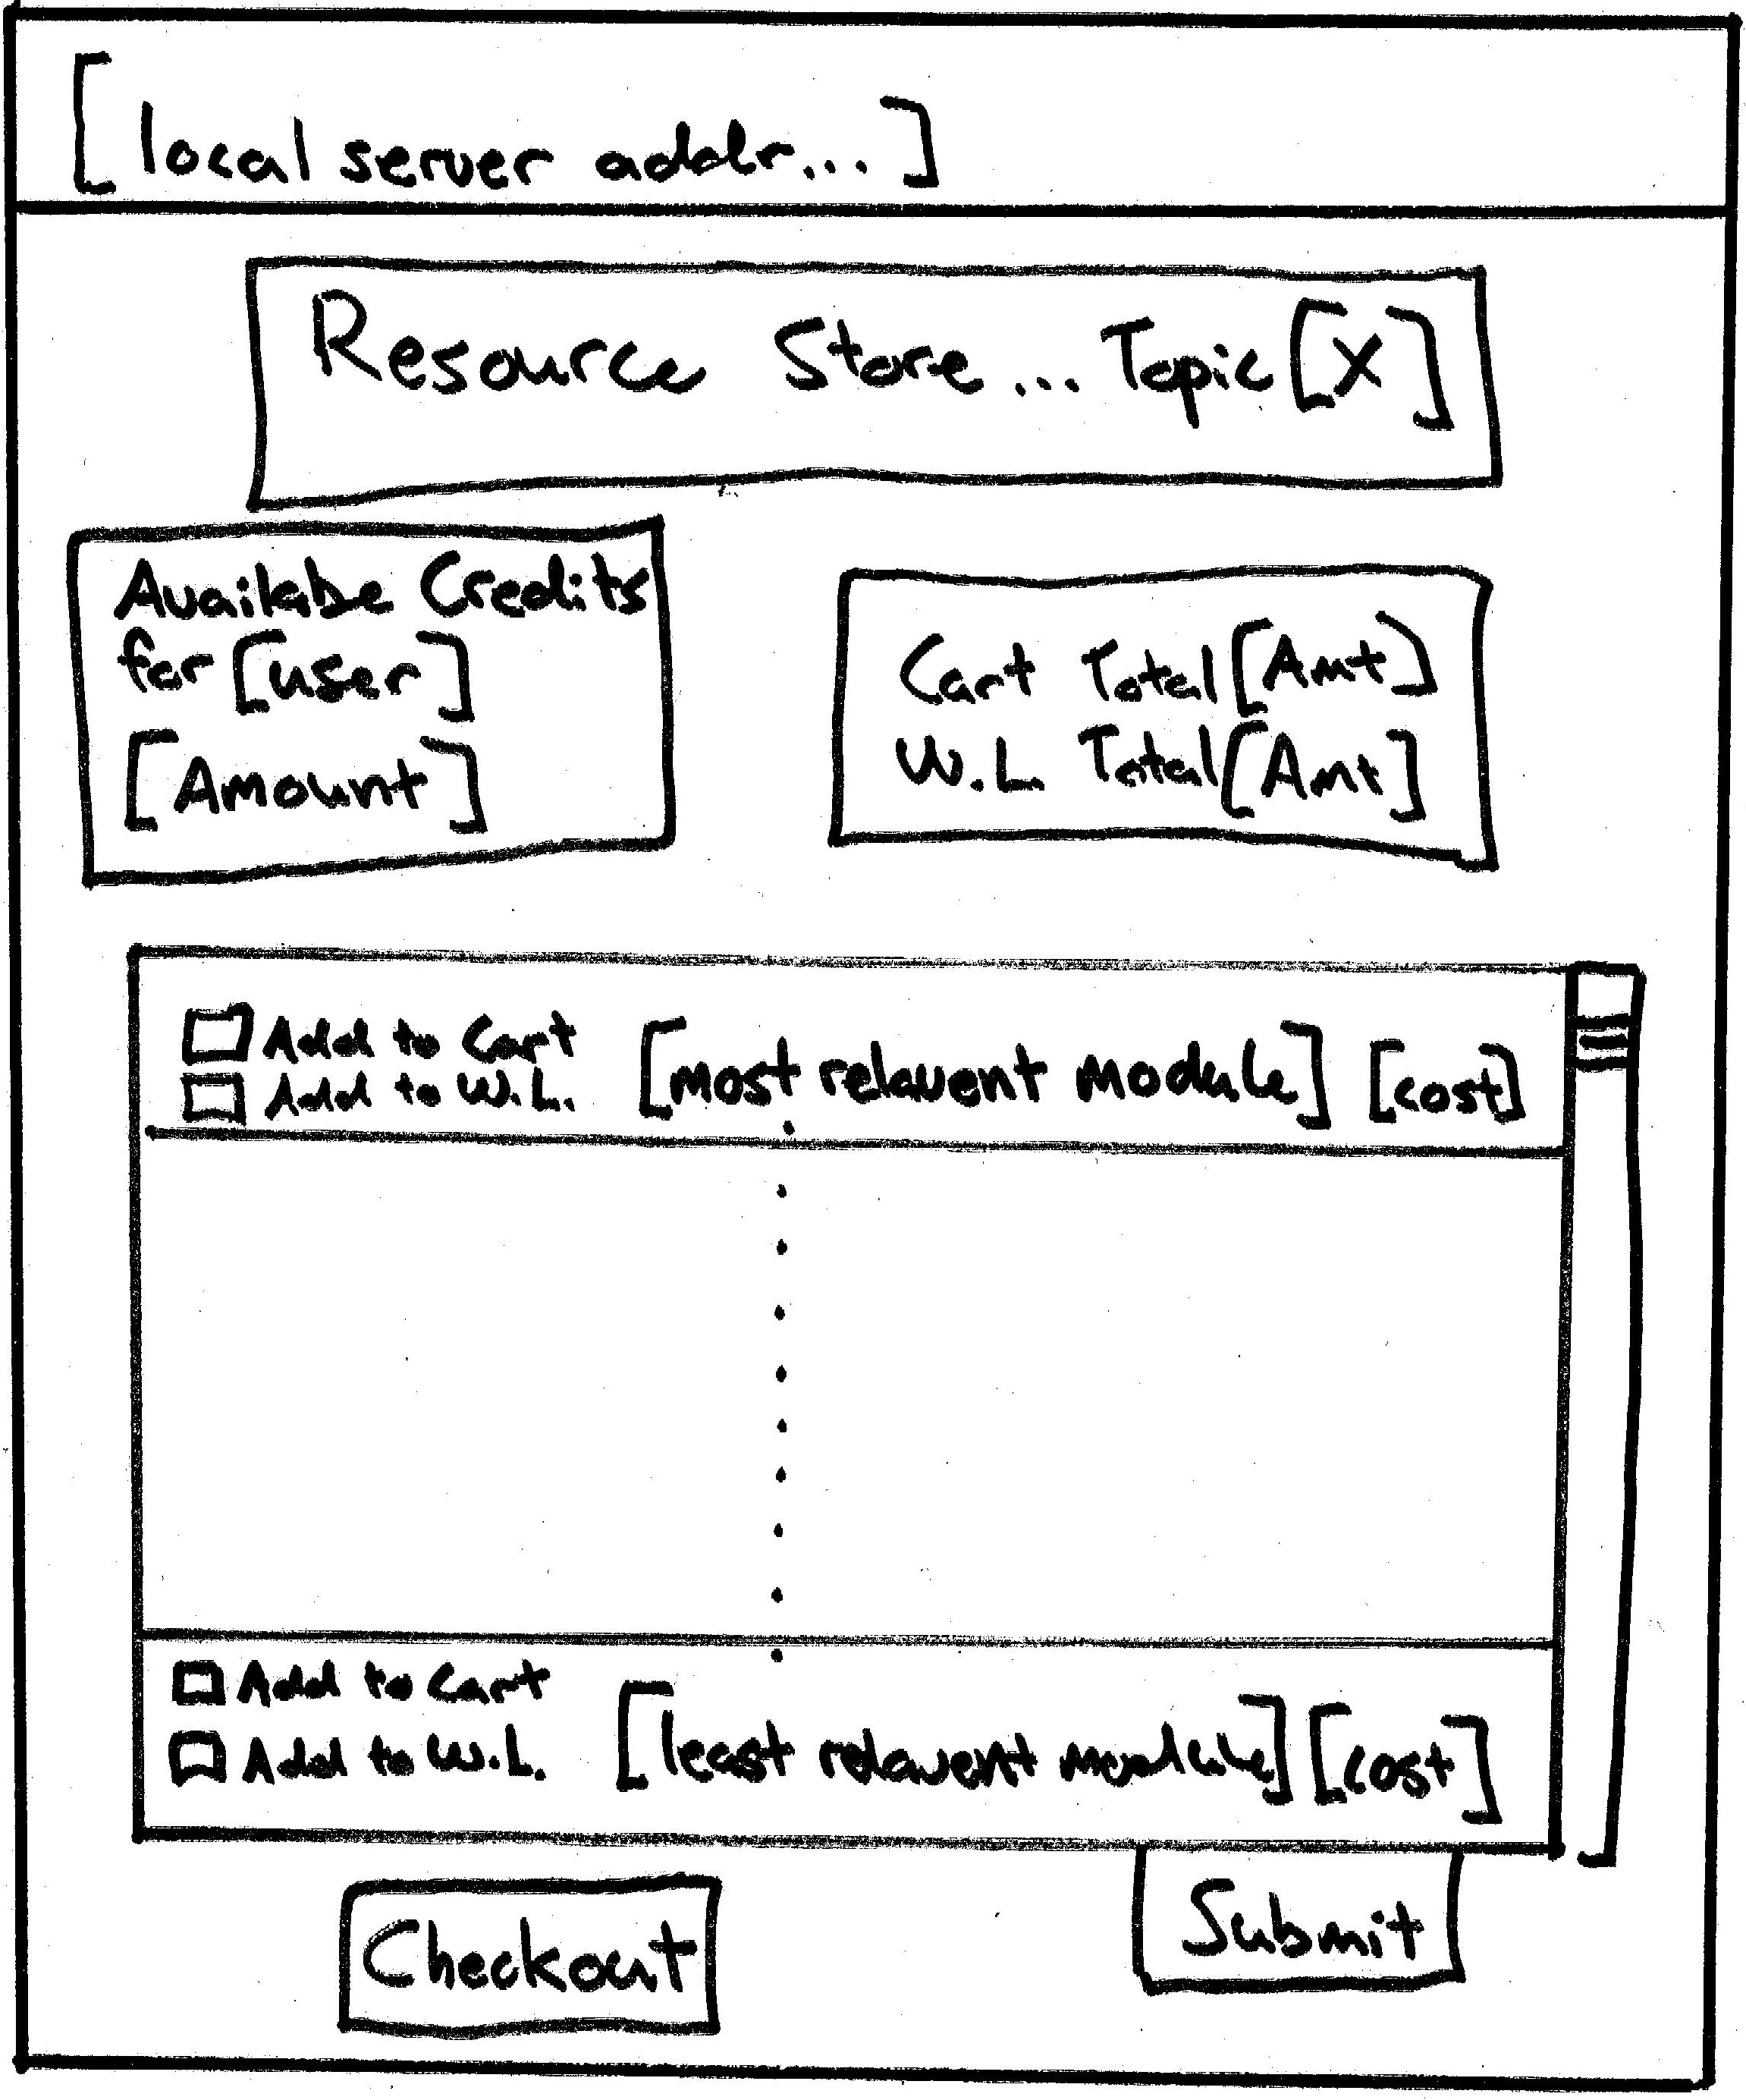 [local server addr...]
Resource Store... Topic [X]
Availabe Credits
for [user]
[Amount]
Cart Total [Amt]
W.L. Total [Amt]
Add to Cart
Add to W.L.
[most relavent module] [cost]
Add to Cart
Add to W.L.
[least relavent module] [cost]
Checkout
Submit